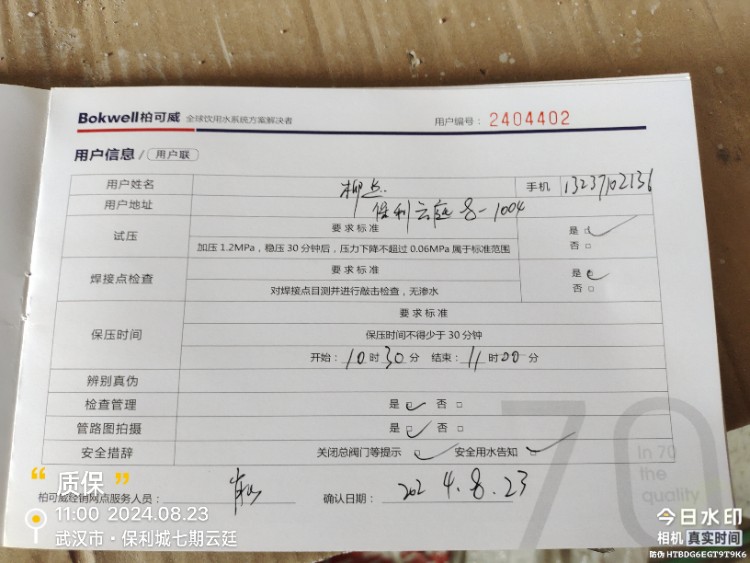 Bokwell柏可威 全球饮用水系统方案解决者 用户编号: 2404402
用户信息 / 用户联
用户姓名 柳 手机 13237102136
用户地址 保利云庭 8-1004
试压 要求标准 是□
加压1.2MPa，稳压30分钟后，压力下降不超过0.06MPa属于标准范围 否□
焊接点检查 要求标准 是□
对焊接点目测并进行敲击检查，无渗水 否□
保压时间 要求标准
保压时间不得少于30分钟
开始: 10时30分 结束: 11时00分
辨别真伪
检查管理 是□ 否□
管路图拍摄 是□ 否□
安全措辞 关闭总阀门等提示□ 安全用水告知□
In 70
the
quality
70
“质保”
柏可威经销网点服务人员: 确认日期: 2024.8.23
11:00 2024.08.23
武汉市·保利城七期云廷
今日水印
相机 真实时间
防伪 HTBDG6EGT9T9K6